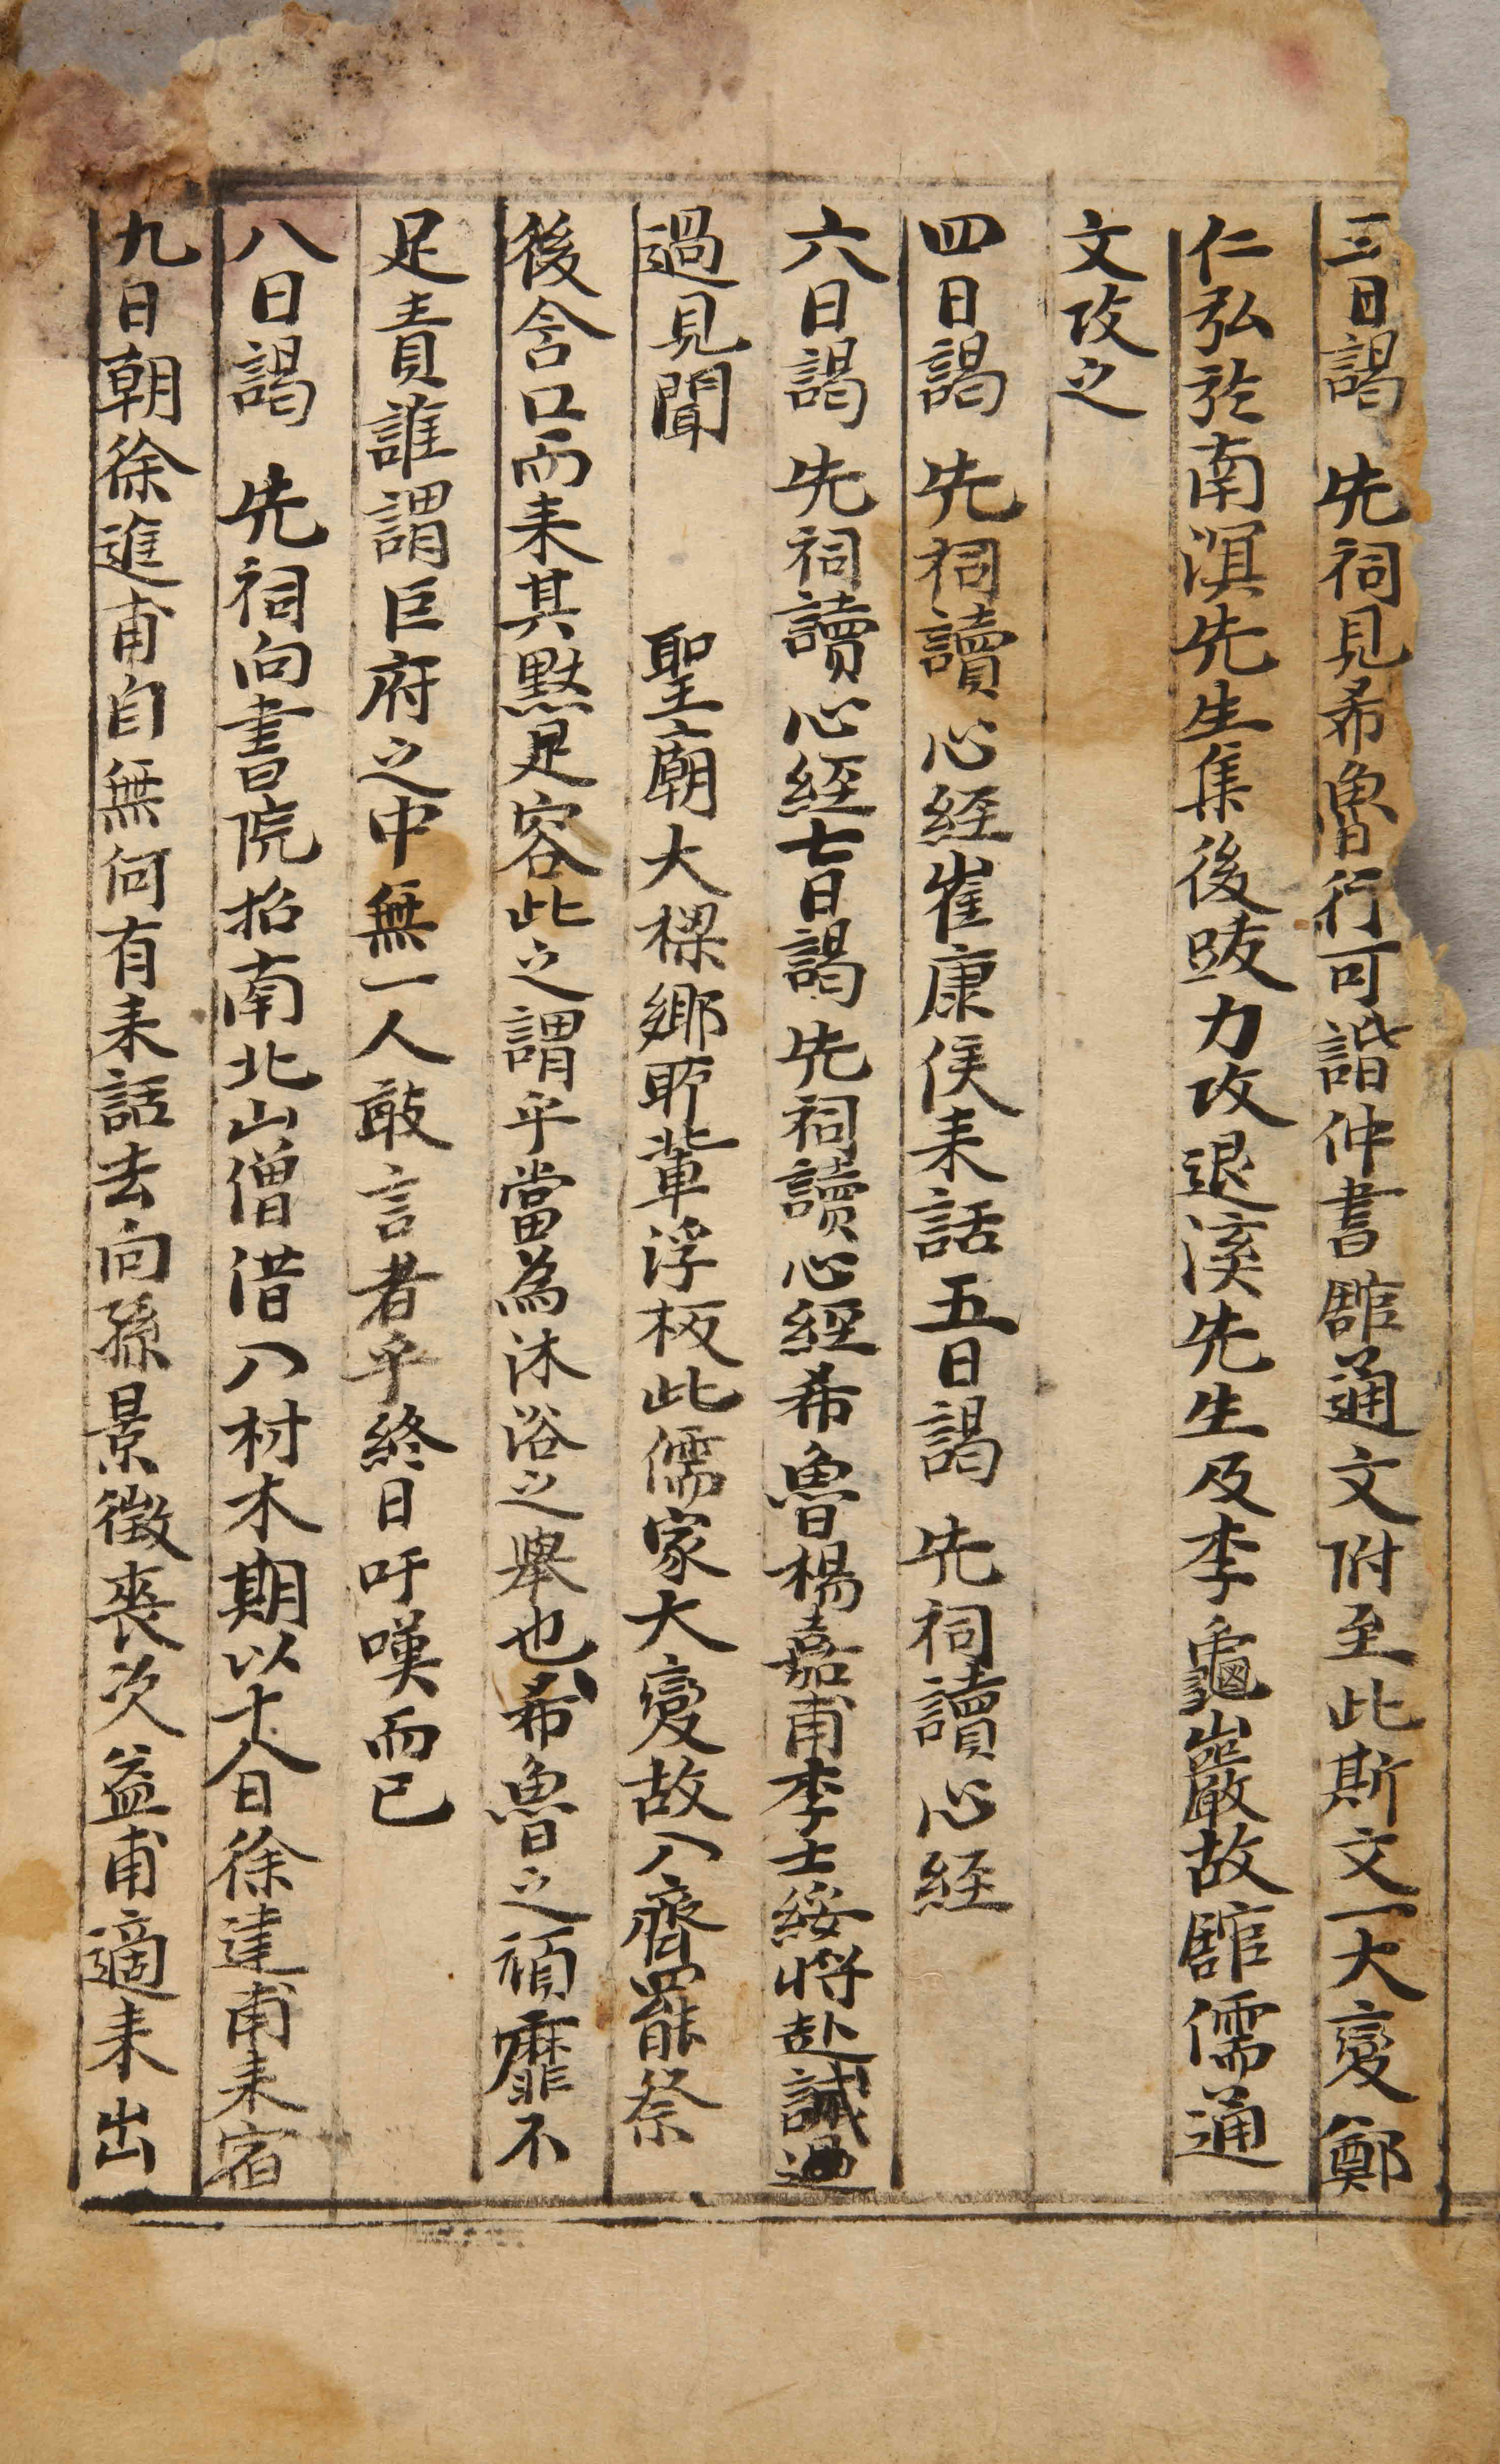 三日謁 先祠見希魯行可諧仲書舘通文附至此斯文一大變鄭
仁弘於南溟先生集後跋力攻退溪先生及李龜巖故舘儒通
文攻之
四日謁 先祠讀心經崔康侯来話五日謁 先祠讀心經
六日謁 先祠讀心經七日謁 先祠讀心經希魯楊嘉甫李士綏將赴試過
過見聞 聖廟大樑鄉耶輩浮板此儒家大變故入齋罷祭
後含口而来其默足容此之謂乎當為沐浴之擧也希魯之頑靡不
足責誰謂巨府之中無一人敢言者乎終日吁嘆而已
八日謁 先祠向書院招南北山僧借入材木期以十八日徐達甫来宿
九日朝徐進甫自無何有来話去向孫景徵喪次益甫適来出